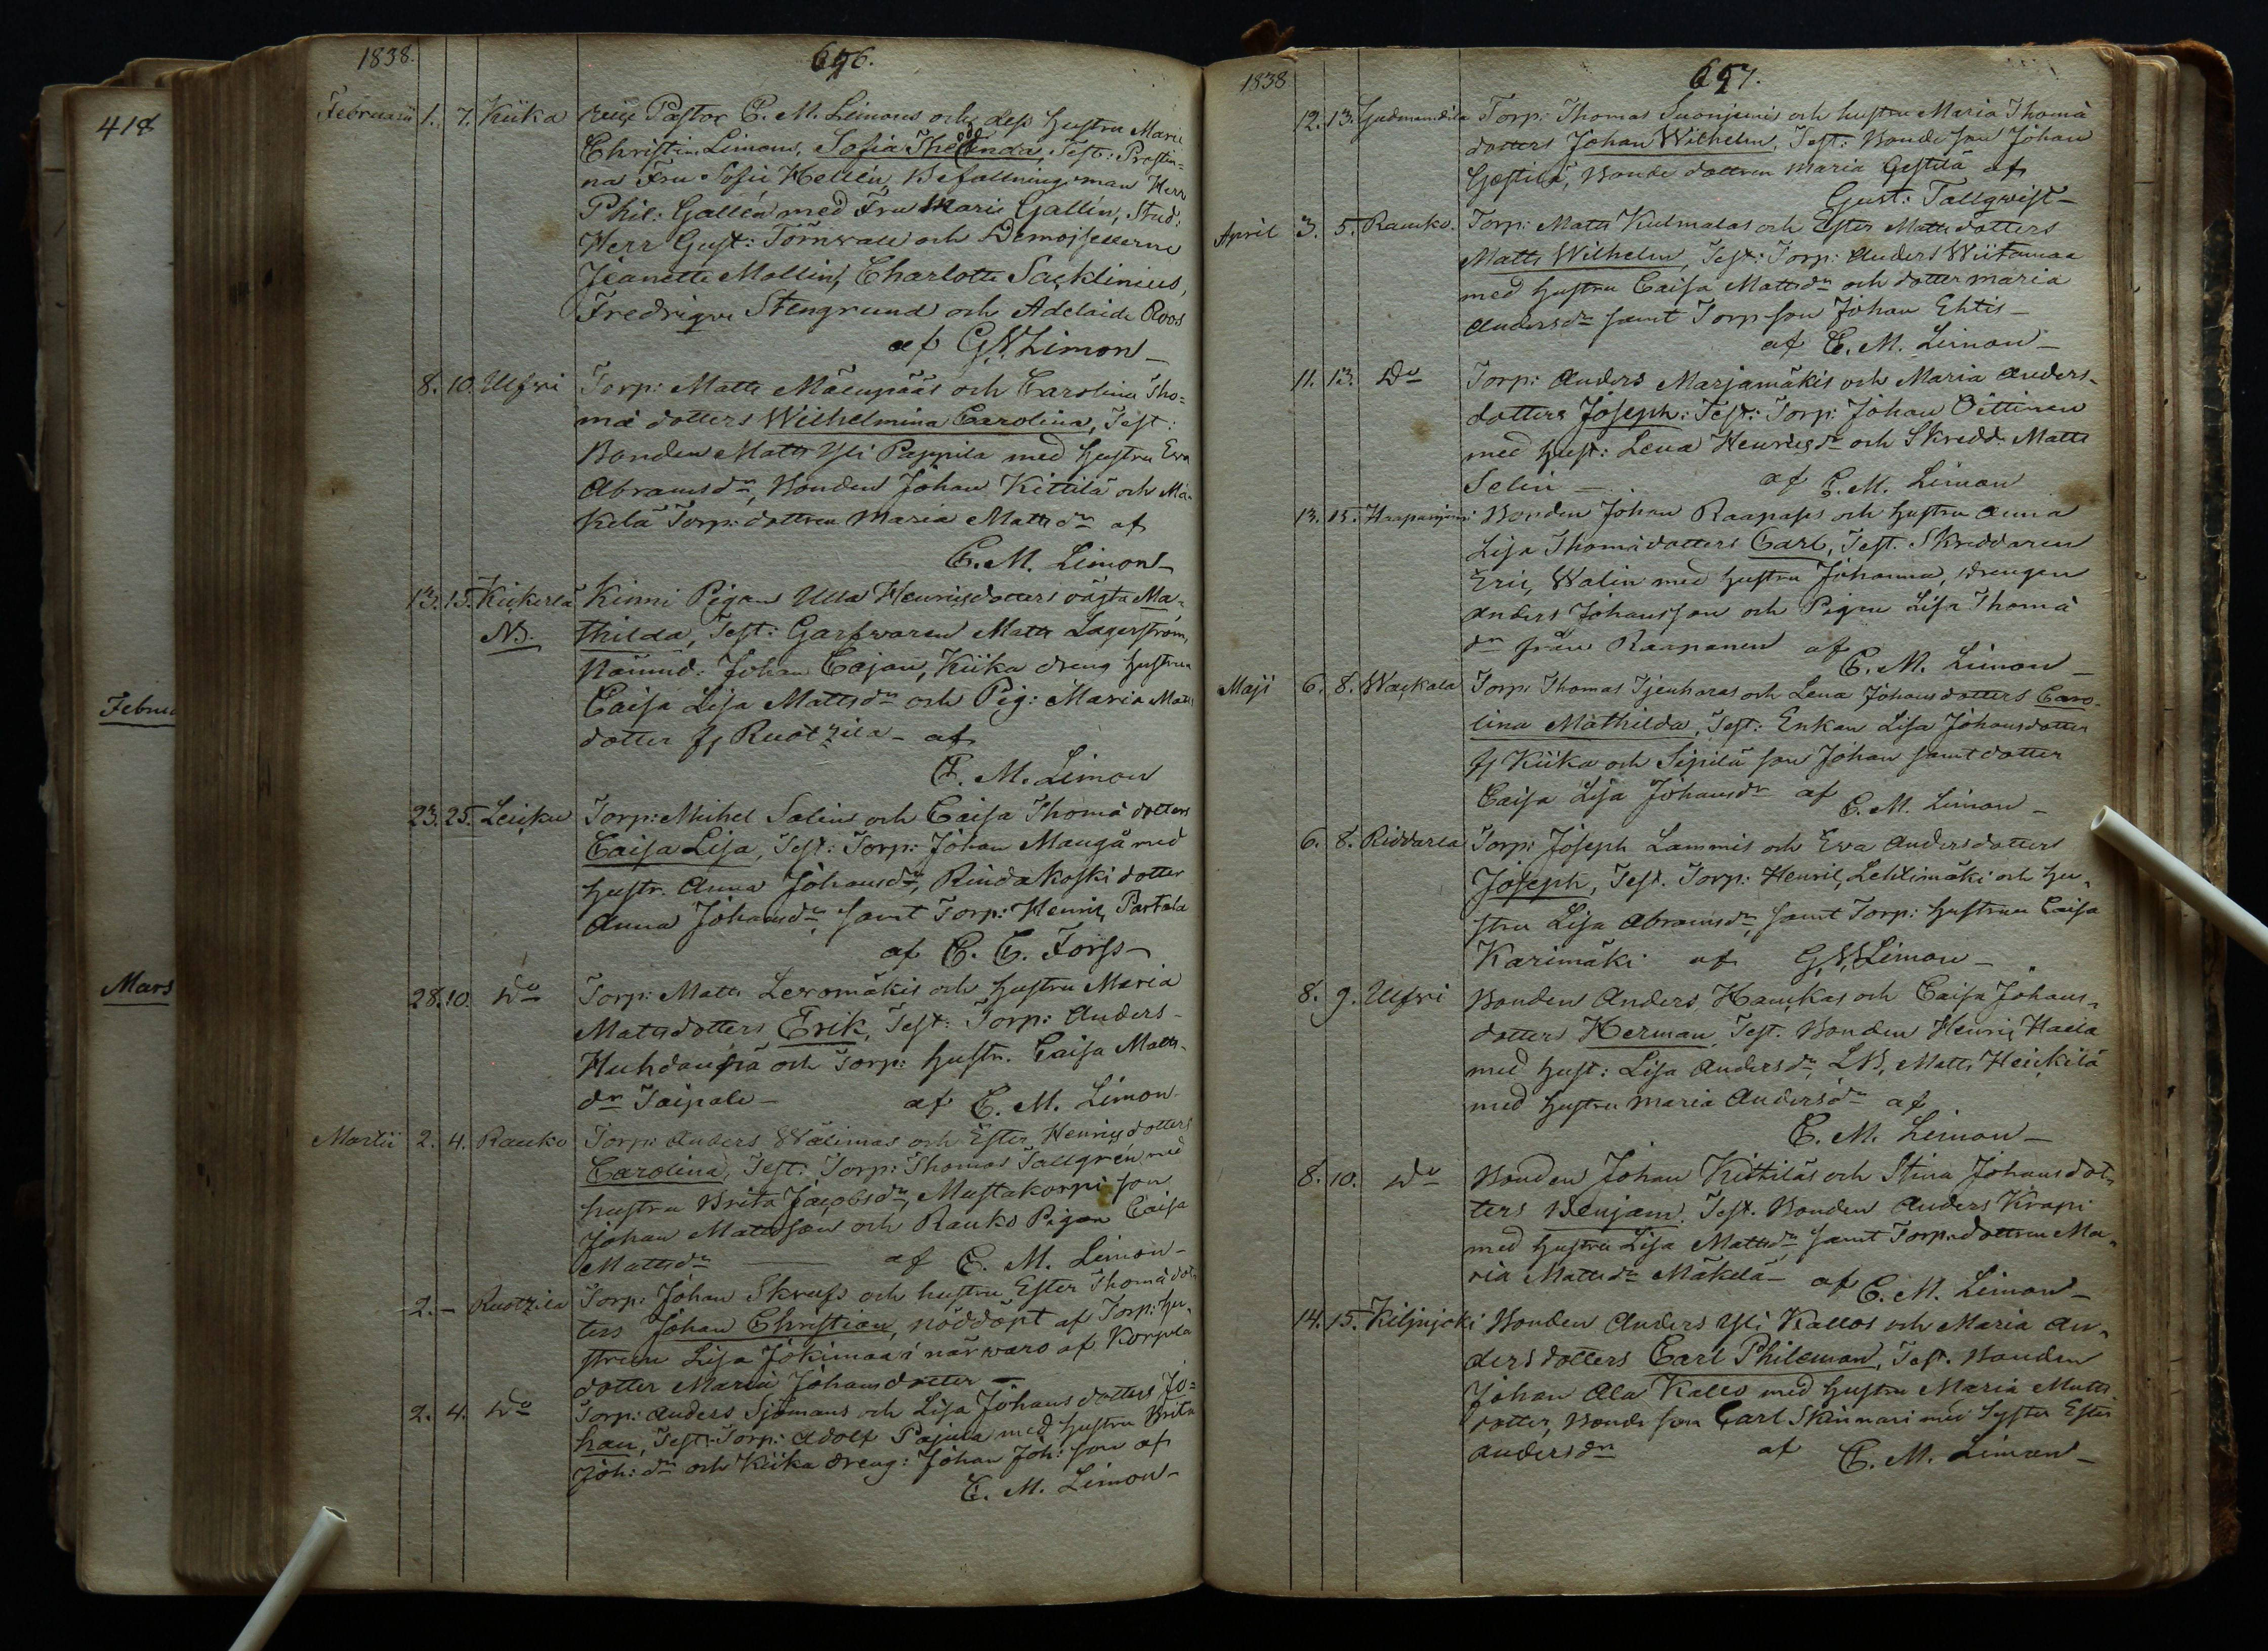 418
Februa
Mars
1838.
656.
Februarii 1. 7. Kiika Vice Pastor C. M. Limons och dess hustru Marie
Christin Limons, Sofia Theodolinda, Test: Prostin=
na Fru Sofie Hellén, Befallningsman Herr
Phil: Gallén med Fru Marie Gallén, Stud:
Herr Gust: Törnvall och Demoisellerne
Jeanette Mollin, Charlotte Sacklinius,
Fredrique Stengrund och Adelaide Roos
af G. N. Limon
8. 10. Ulfvi Torp: Matts Mäenpääs och Carolina Tho=
mæ dotters Wilhelmina Carolina, Test:
Bonden Matts Yli Pappila med hustru Eva
Abramsdr, Bonden Johan Kittilä och Mä=
kelä Torp: dottren Maria Mattsdr af
C. M. Limon
13. 15. Kickerlä Kinni Pigan Ulla Henricsdotters oägta Ma=
NB. thilda, Test: Garfwaren Matts Lagerström,
Nämnd: Johan Cajan, Kiika dreng hustrun
Caisa Lisa Mattsdr och Pig: Maria Matts
dotter fr Ruotzila af
C. M. Limon
23. 25. Leiku Torp: Michel Salins och Caisa Thomæ dotters
Caisa Lisa, Test: Torp: Johan Mangå med
hustr. Anna Johansdr, Rindakoski dotter
Anna Johansdr, samt Torp: Henric Partala
af C. C. Forss
28. 10. Do Torp: Matts Levomäkis och hustru Maria
Mattsdotters Erik, Test: Torp: Anders
Huhdanpä och Torp: hustr. Caisa Matts-
dr Taipale af C. M. Limon
Martii 2. 4. Rauko Torp: Anders Wälimas och Ester Henricsdotters
Carolina, Test: Torp: Thomas Tallgrén med
hustru Brita Jacobsdr, Mustakorpi son
Johan Mattsson och Rauko Pigan Caisa
Mattsdr af C. M. Limon
2. – Ruotzila Torp: Johan Skrufs och hustru Ester Thomædot=
ters Johan Christian, nöddöpt af Torp: hu=
strun Lisa Jokimaa i närwaro af Korpela
dotter Maria Johansdotter
2. 4. Do Torp: Anders Sjömans och Lisa Johansdotters Jo=
han, Test: Torp: Adolf Pajula med hustru Brita
Joh: dr och Kiika dreng: Johan Joh: son af
C. M. Limon
1838
657.
12. 13. Gudmundila Torp: Thomas Suonjemis och hustru Maria Thomæ
dotters Johan Wilhelm, Test: Bonde son Johan
Gestilä, Bonde dottren Maria Gestilä af
Gust: Tallqvist
April 3. 5. Rauko. Torp: Matts Kulmalas och Ester Mattsdotters
Matts Wilhelm, Test: Torp: Anders Wiitamaa
med hustru Caisa Mattsdr och dotter Maria
Andersdr samt Torp son Johan Ehtis
af C. M. Limon
11. 13. Do Torp: Anders Marjamäkis och Maria Anders-
dotters Joseph: Test: Torp: Johan Oittinen
med hust: Lena Henricsdr och Skredd: Matts
Selin af C. M. Limon
13. 15. Haapaniemi Bonden Johan Raapapss och hustru Anna
Lisa Thomædotters Carl, Test. Skreddaren
Eric Walin med hustru Johanna, drengen
Anders Johansson och Pigan Lisa Thomæ
dr från Raapanen af C. M. Limon
Maji 6. 8. Wackala Torp: Thomas Tjenharas och Lena Johansdotters Caro=
lina Mathilda, Test: Enkan Lisa Johansdotter
fr Kiika och Sipilä son Johan samt dotter
Caisa Lisa Johansdr af C. M. Limon
6. 8. Riddarla Torp: Joseph Lammis och Eva Andersdotters
Joseph, Test. Torp: Henric Lehtimäki och hu=
stru Lisa Abramsdr, samt Torp: hustrun Caisa
Karimäki af G. N. Limon
8. 9. Ulfvi Bonden Anders Hauckas och Caisa Johans=
dotters Herman, Test. Bonden Henric Haila
med hust: Lisa Andersdr, LB, Matts Heickilä
med hustru Maria Andersdr af
C. M. Limon
8. 10. Do Bonden Johan Kittiläs och Stina Johansdot=
ters Benjam. Test. Bonden Anders Krapi
med hustru Lisa Mattsdr samt Torp: dottren Ma=
ria Mattsdr Mäkelä af C. M. Limon
14. 15. Kilpijoki Bonden Anders Yli Kallos och Maria An=
dersdotters Carl Phileman, Test. Bonden
Johan Ala Kallo med hustru Maria Matts
dotter, Bonde son Carl Skinnari med Syster Ester
Andersdr af C. M. Limon